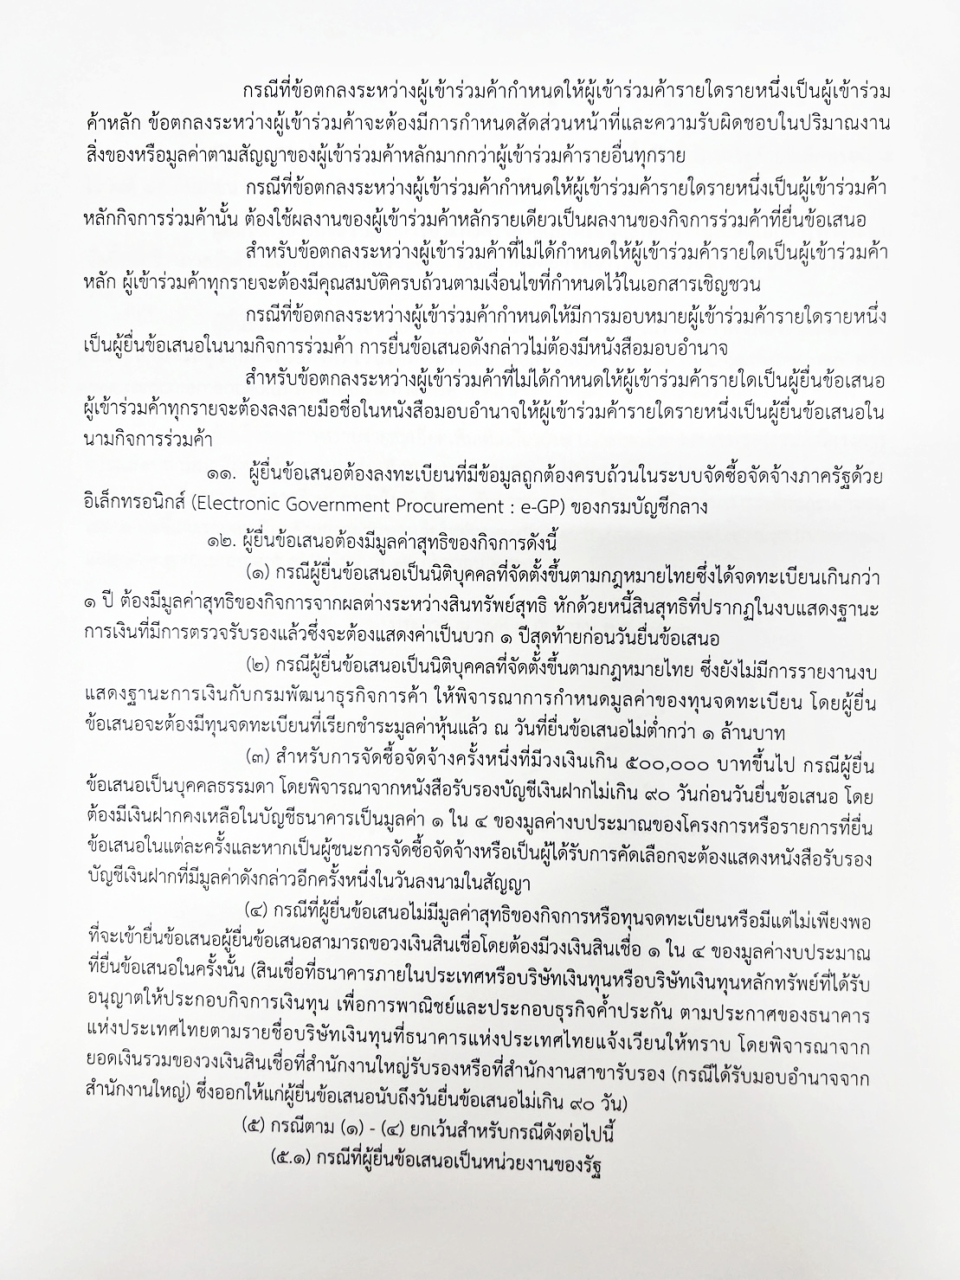 กรณีที่ข้อตกลงระหว่างผู้เข้าร่วมค้ากำหนดให้ผู้เข้าร่วมค้ารายใดรายหนึ่งเป็นผู้เข้าร่วม
ค้าหลัก ข้อตกลงระหว่างผู้เข้าร่วมค้าจะต้องมีการกำหนดสัดส่วนหน้าที่และความรับผิดชอบในปริมาณงาน
สิ่งของหรือมูลค่าตามสัญญาของผู้เข้าร่วมค้าหลักมากกว่าผู้เข้าร่วมค้ารายอื่นทุกราย
กรณีที่ข้อตกลงระหว่างผู้เข้าร่วมค้ากำหนดให้ผู้เข้าร่วมค้ารายใดรายหนึ่งเป็นผู้เข้าร่วมค้า
หลักกิจการร่วมค้านั้น ต้องใช้ผลงานของผู้เข้าร่วมค้าหลักรายเดียวเป็นผลงานของกิจการร่วมค้าที่ยื่นข้อเสนอ
สำหรับข้อตกลงระหว่างผู้เข้าร่วมค้าที่ไม่ได้กำหนดให้ผู้เข้าร่วมค้ารายใดเป็นผู้เข้าร่วมค้า
หลัก ผู้เข้าร่วมค้าทุกรายจะต้องมีคุณสมบัติครบถ้วนตามเงื่อนไขที่กำหนดไว้ในเอกสารเชิญชวน
กรณีที่ข้อตกลงระหว่างผู้เข้าร่วมค้ากำหนดให้มีการมอบหมายผู้เข้าร่วมค้ารายใดรายหนึ่ง
เป็นผู้ยื่นข้อเสนอในนามกิจการร่วมค้า การยื่นข้อเสนอดังกล่าวไม่ต้องมีหนังสือมอบอำนาจ
สำหรับข้อตกลงระหว่างผู้เข้าร่วมค้าที่ไม่ได้กำหนดให้ผู้เข้าร่วมค้ารายใดเป็นผู้ยื่นข้อเสนอ
ผู้เข้าร่วมค้าทุกรายจะต้องลงลายมือชื่อในหนังสือมอบอำนาจให้ผู้เข้าร่วมค้ารายใดรายหนึ่งเป็นผู้ยื่นข้อเสนอใน
นามกิจการร่วมค้า
๑๑. ผู้ยื่นข้อเสนอต้องลงทะเบียนที่มีข้อมูลถูกต้องครบถ้วนในระบบจัดซื้อจัดจ้างภาครัฐด้วย
อิเล็กทรอนิกส์ (Electronic Government Procurement : e-GP) ของกรมบัญชีกลาง
๑๒. ผู้ยื่นข้อเสนอต้องมีมูลค่าสุทธิของกิจการดังนี้
(๑) กรณีผู้ยื่นข้อเสนอเป็นนิติบุคคลที่จัดตั้งขึ้นตามกฎหมายไทยซึ่งได้จดทะเบียนเกินกว่า
๑ ปี ต้องมีมูลค่าสุทธิของกิจการจากผลต่างระหว่างสินทรัพย์สุทธิ หักด้วยหนี้สินสุทธิที่ปรากฏในงบแสดงฐานะ
การเงินที่มีการตรวจรับรองแล้วซึ่งจะต้องแสดงค่าเป็นบวก ๑ ปีสุดท้ายก่อนวันยื่นข้อเสนอ
(๒) กรณีผู้ยื่นข้อเสนอเป็นนิติบุคคลที่จัดตั้งขึ้นตามกฎหมายไทย ซึ่งยังไม่มีการรายงานงบ
แสดงฐานะการเงินกับกรมพัฒนาธุรกิจการค้า ให้พิจารณาการกำหนดมูลค่าของทุนจดทะเบียน โดยผู้ยื่น
ข้อเสนอจะต้องมีทุนจดทะเบียนที่เรียกชำระมูลค่าหุ้นแล้ว ณ วันที่ยื่นข้อเสนอไม่ต่ำกว่า ๑ ล้านบาท
(๓) สำหรับการจัดซื้อจัดจ้างครั้งหนึ่งที่มีวงเงินเกิน ๕๐๐,๐๐๐ บาทขึ้นไป กรณีผู้ยื่น
ข้อเสนอเป็นบุคคลธรรมดา โดยพิจารณาจากหนังสือรับรองบัญชีเงินฝากไม่เกิน ๙๐ วันก่อนวันยื่นข้อเสนอ โดย
ต้องมีเงินฝากคงเหลือในบัญชีธนาคารเป็นมูลค่า ๑ ใน ๔ ของมูลค่างบประมาณของโครงการหรือรายการที่ยื่น
ข้อเสนอในแต่ละครั้งและหากเป็นผู้ชนะการจัดซื้อจัดจ้างหรือเป็นผู้ได้รับการคัดเลือกจะต้องแสดงหนังสือรับรอง
บัญชีเงินฝากที่มีมูลค่าดังกล่าวอีกครั้งหนึ่งในวันลงนามในสัญญา
(๔) กรณีที่ผู้ยื่นข้อเสนอไม่มีมูลค่าสุทธิของกิจการหรือทุนจดทะเบียนหรือมีแต่ไม่เพียงพอ
ที่จะเข้ายื่นข้อเสนอผู้ยื่นข้อเสนอสามารถขอวงเงินสินเชื่อโดยต้องมีวงเงินสินเชื่อ ๑ ใน ๔ ของมูลค่างบประมาณ
ที่ยื่นข้อเสนอในครั้งนั้น (สินเชื่อที่ธนาคารภายในประเทศหรือบริษัทเงินทุนหรือบริษัทเงินทุนหลักทรัพย์ที่ได้รับ
อนุญาตให้ประกอบกิจการเงินทุน เพื่อการพาณิชย์และประกอบธุรกิจค้ำประกัน ตามประกาศของธนาคาร
แห่งประเทศไทยตามรายชื่อบริษัทเงินทุนที่ธนาคารแห่งประเทศไทยแจ้งเวียนให้ทราบ โดยพิจารณาจาก
ยอดเงินรวมของวงเงินสินเชื่อที่สำนักงานใหญ่รับรองหรือที่สำนักงานสาขารับรอง (กรณีได้รับมอบอำนาจจาก
สำนักงานใหญ่) ซึ่งออกให้แก่ผู้ยื่นข้อเสนอนับถึงวันยื่นข้อเสนอไม่เกิน ๙๐ วัน)
(๕) กรณีตาม (๑) - (๔) ยกเว้นสำหรับกรณีดังต่อไปนี้
(๕.๑) กรณีที่ผู้ยื่นข้อเสนอเป็นหน่วยงานของรัฐ